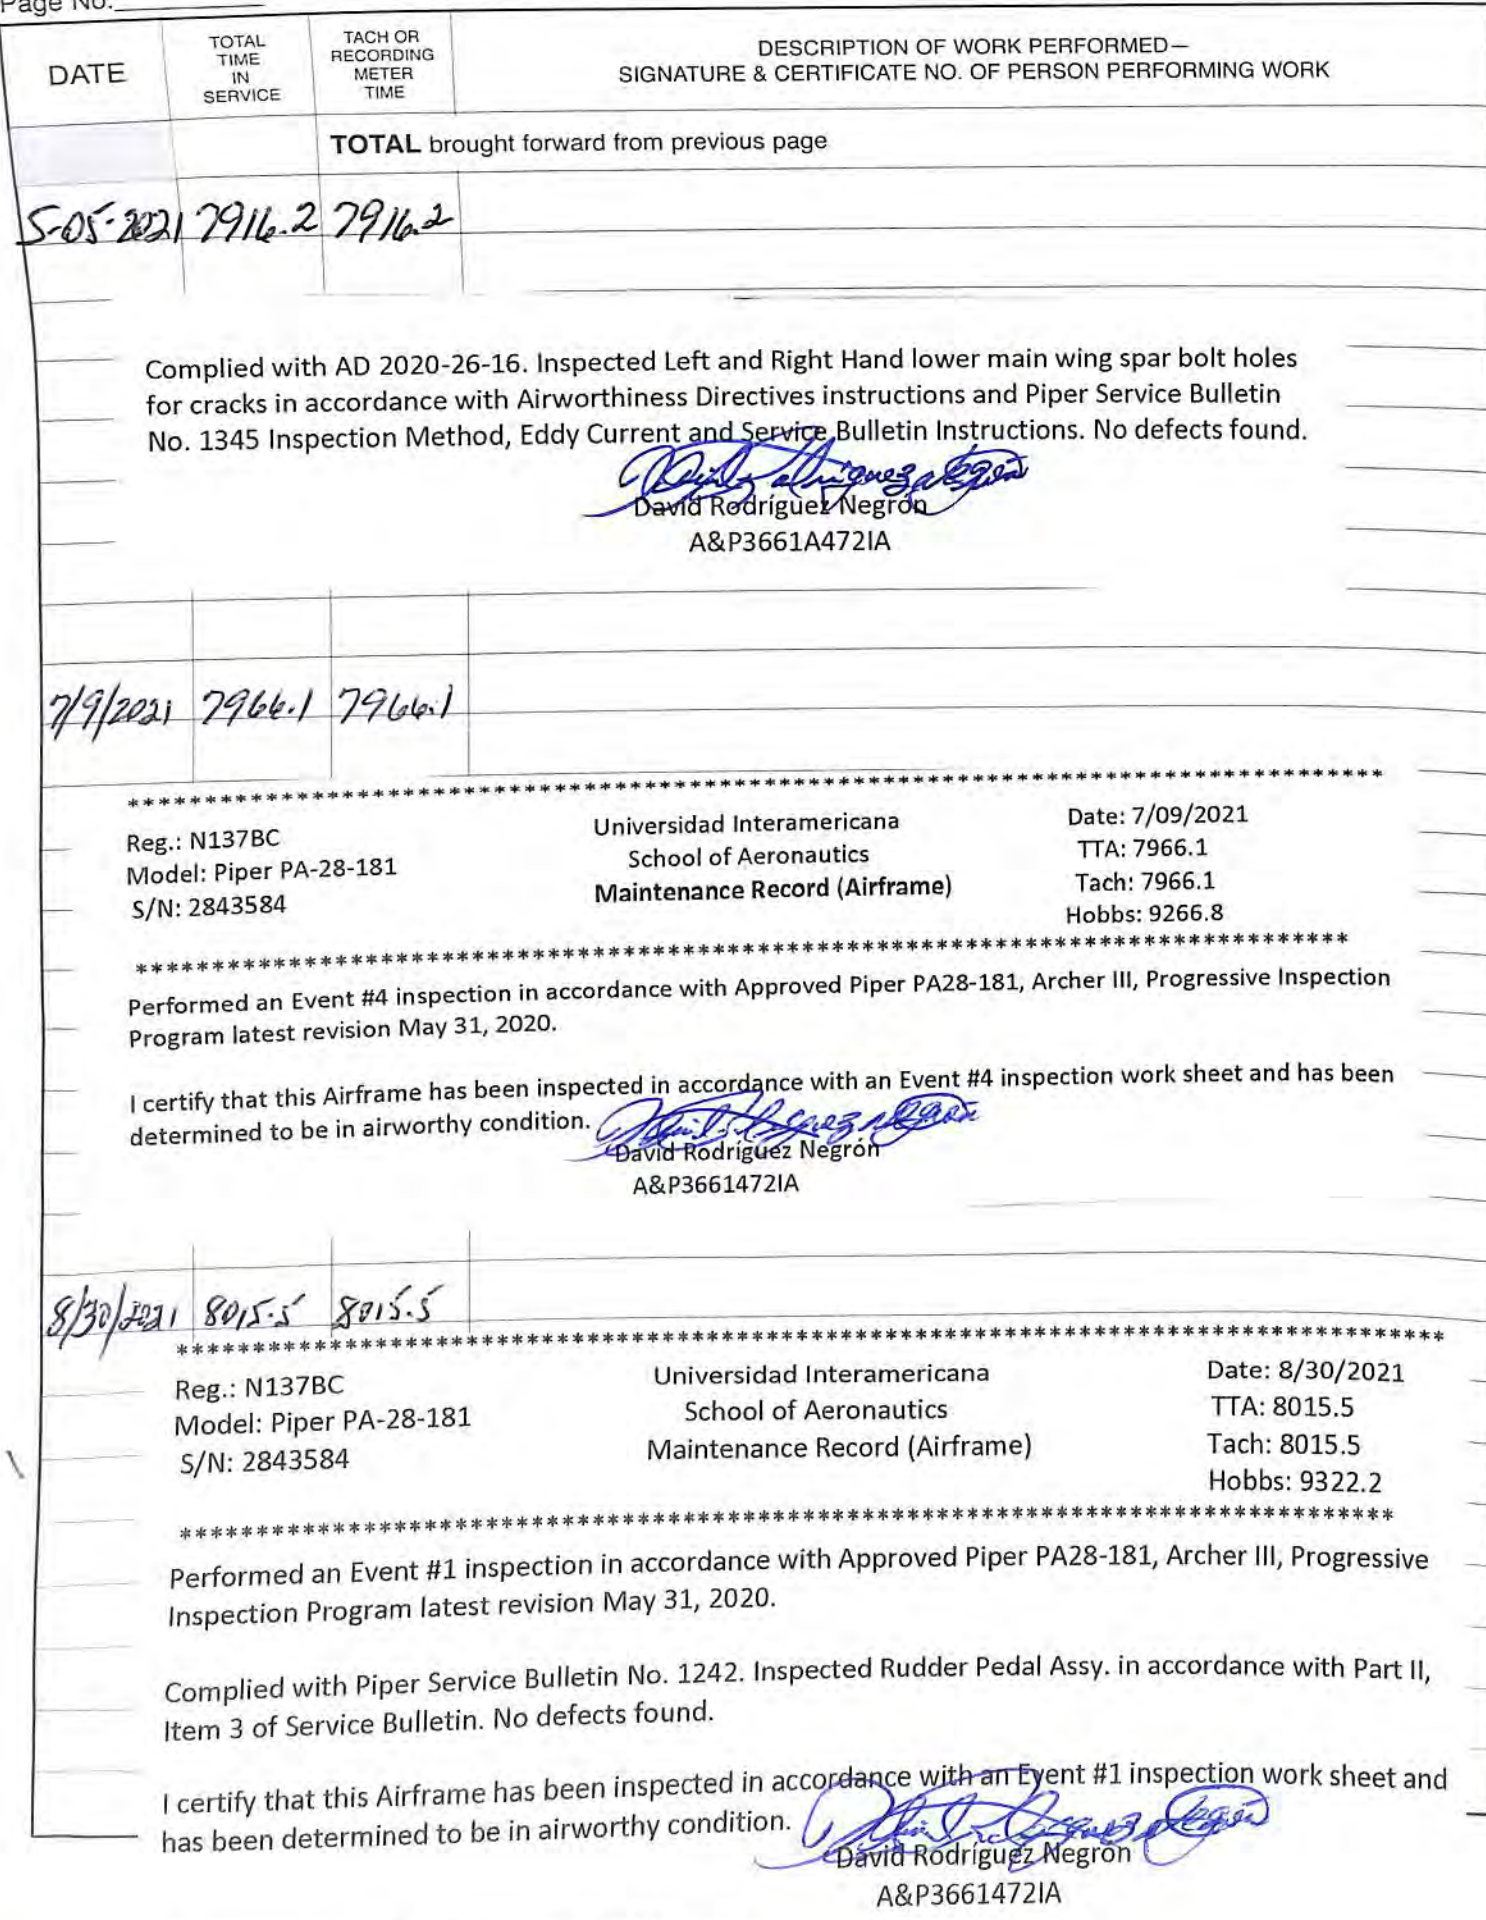 Page No.
DATE
TOTAL
TIME
IN
SERVICE
TACH OR
RECORDING
METER
TIME
DESCRIPTION OF WORK PERFORMED—
SIGNATURE & CERTIFICATE NO. OF PERSON PERFORMING WORK
TOTAL brought forward from previous page
5-05-2021 7916.2 7916.2
Complied with AD 2020-26-16. Inspected Left and Right Hand lower main wing spar bolt holes
for cracks in accordance with Airworthiness Directives instructions and Piper Service Bulletin
No. 1345 Inspection Method, Eddy Current and Service Bulletin Instructions. No defects found.
David Rodríguez Negrón
A&P3661A472IA
7/9/2021 7966.1 7966.1
********************************************************************************
Reg.: N137BC
Model: Piper PA-28-181
S/N: 2843584
Universidad Interamericana
School of Aeronautics
Maintenance Record (Airframe)
Date: 7/09/2021
TTA: 7966.1
Tach: 7966.1
Hobbs: 9266.8
********************************************************************************
Performed an Event #4 inspection in accordance with Approved Piper PA28-181, Archer III, Progressive Inspection
Program latest revision May 31, 2020.
I certify that this Airframe has been inspected in accordance with an Event #4 inspection work sheet and has been
determined to be in airworthy condition.
David Rodríguez Negrón
A&P3661472IA
8/30/2021 8015.5 8015.5
********************************************************************************
Reg.: N137BC
Model: Piper PA-28-181
S/N: 2843584
Universidad Interamericana
School of Aeronautics
Maintenance Record (Airframe)
Date: 8/30/2021
TTA: 8015.5
Tach: 8015.5
Hobbs: 9322.2
********************************************************************************
Performed an Event #1 inspection in accordance with Approved Piper PA28-181, Archer III, Progressive
Inspection Program latest revision May 31, 2020.
Complied with Piper Service Bulletin No. 1242. Inspected Rudder Pedal Assy. in accordance with Part II,
Item 3 of Service Bulletin. No defects found.
I certify that this Airframe has been inspected in accordance with an Event #1 inspection work sheet and
has been determined to be in airworthy condition.
David Rodríguez Negrón
A&P3661472IA